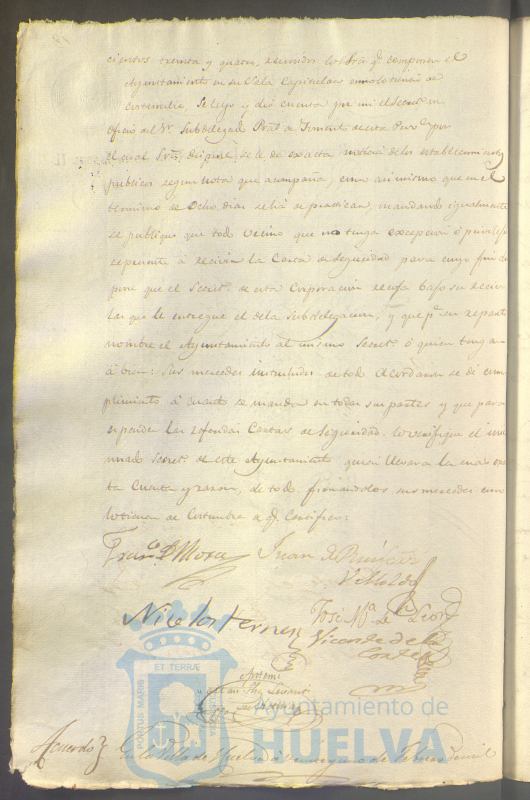 cientos treinta y quatro, reunidos los Sres qe componen el
Ayuntamiento en su Sala Capitular como lo tienen de
costumbre, se leyo y dió cuenta por mi el Secreto un
oficio del Sr Subdelegado Pral de Fomento de esta Prova por
el cual dispone, se le de exacta noticia de los establecimientos
publicos segun nota que acompaña, como asimismo que en el
termino de Ocho dias se ha de practicar, mandando igualmente
se publique que todo Vecino que no tenga excepcion ó privilegio
se presente á recivir la Carta de Seguridad para cuyo fin dis
pone que el Secreto de esta Corporacion recoja bajo su recivo
las que le entregue el de la Subdelegacion, y que pa su reparto
nombre el Ayuntamiento al mismo Secreto ó quien tenga
á bien: Sus mercedes instruidos de todo Acordaron se dé cum
plimiento á cuanto se manda en todas sus partes y que para
espender las referidas Cartas de Seguridad lo verifique el
Secreto de este Ayuntamiento quien llevará la mas exac
ta Cuenta y razon, de todo firmandolo sus mercedes como
lo tienen de Costumbre de qe Certifico:
Franco de Mora Juan de
Nicolas José Ma de Leon
Vicente de la
Corte
Antoni
PORTUS MARIS ET TERRÆ
Ayuntamiento de
HUELVA
Acuerdo } En la Villa de Huelva á de de mil